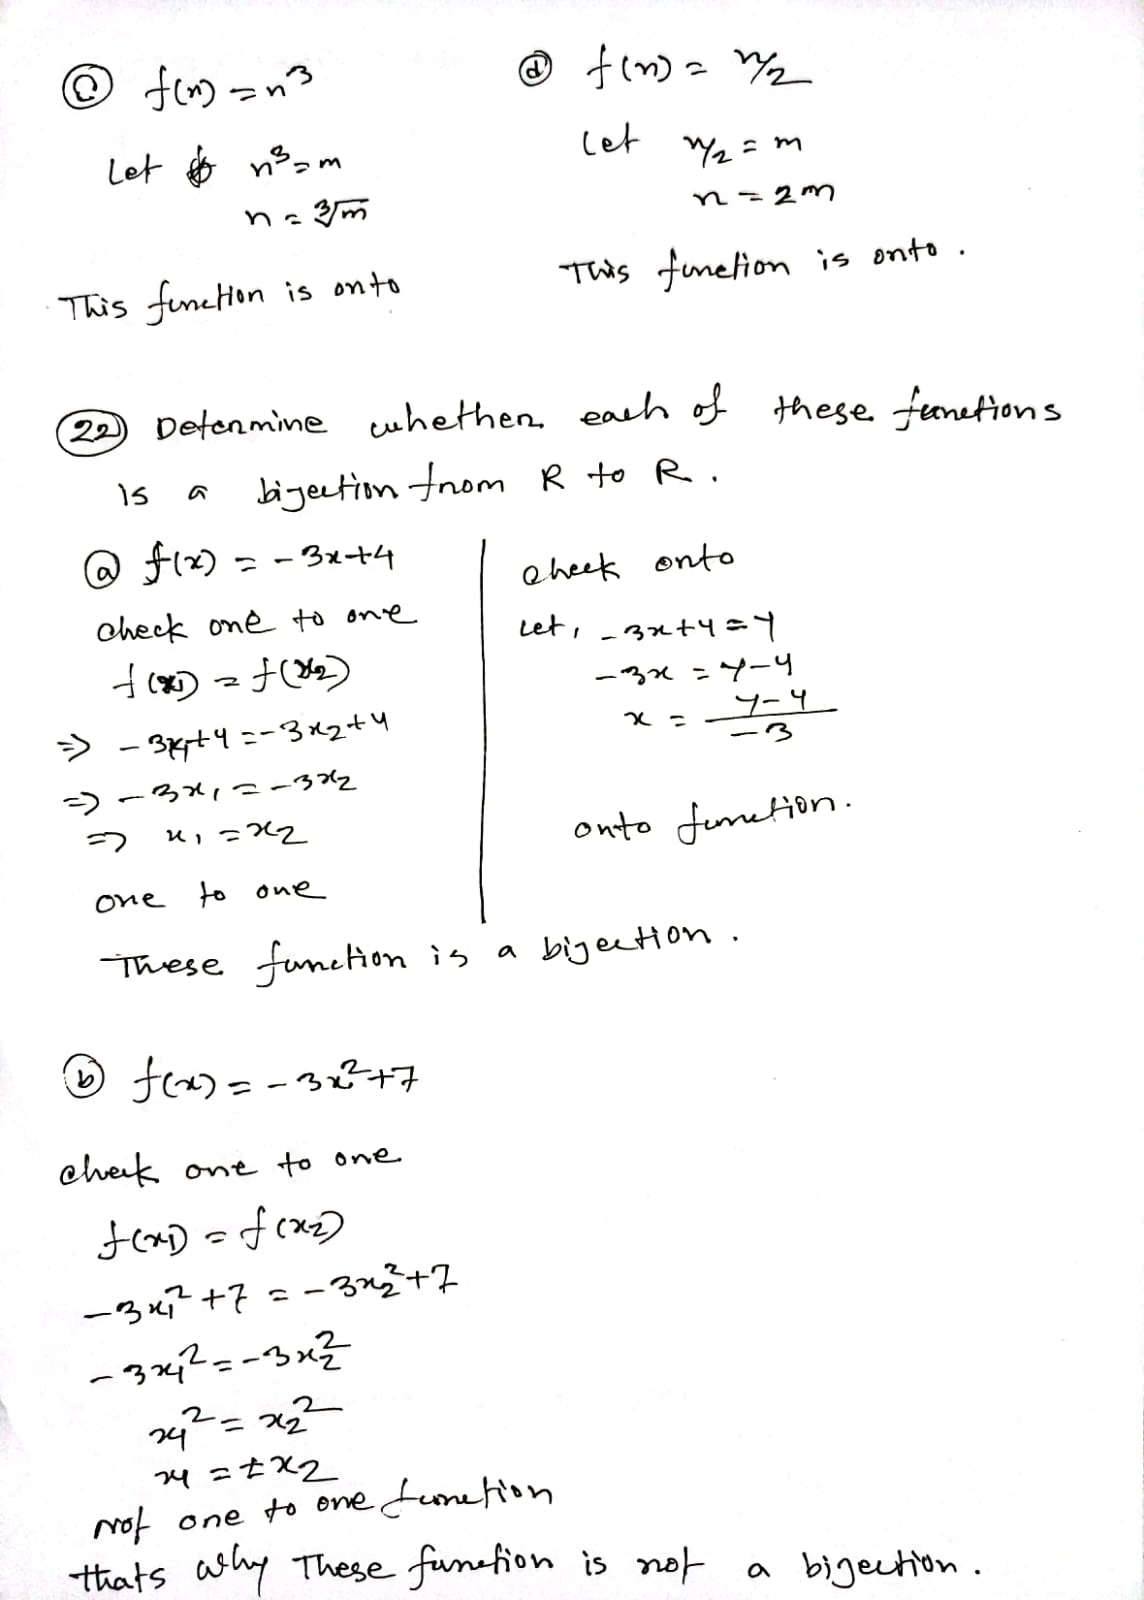 ⓒ f(n) = n³
Let n³ = m
n = ∛m
This function is onto
ⓓ f(n) = n/2
Let n/2 = m
n = 2m
This function is onto.
㉒ Determine whether each of these functions
is a bijection from R to R.
ⓐ f(x) = -3x+4
check one to one
f(x₁) = f(x₂)
⇒ -3x₁+4 = -3x₂+4
⇒ -3x₁ = -3x₂
⇒ x₁ = x₂
one to one
check onto
Let, -3x+4 = y
-3x = y-4
x = (y-4)/-3
onto function.
These function is a bijection.
ⓑ f(x) = -3x²+7
check one to one
f(x₁) = f(x₂)
-3x₁²+7 = -3x₂²+7
-3x₁² = -3x₂²
x₁² = x₂²
x₁ = ±x₂
Not one to one function
thats why These function is not a bijection.